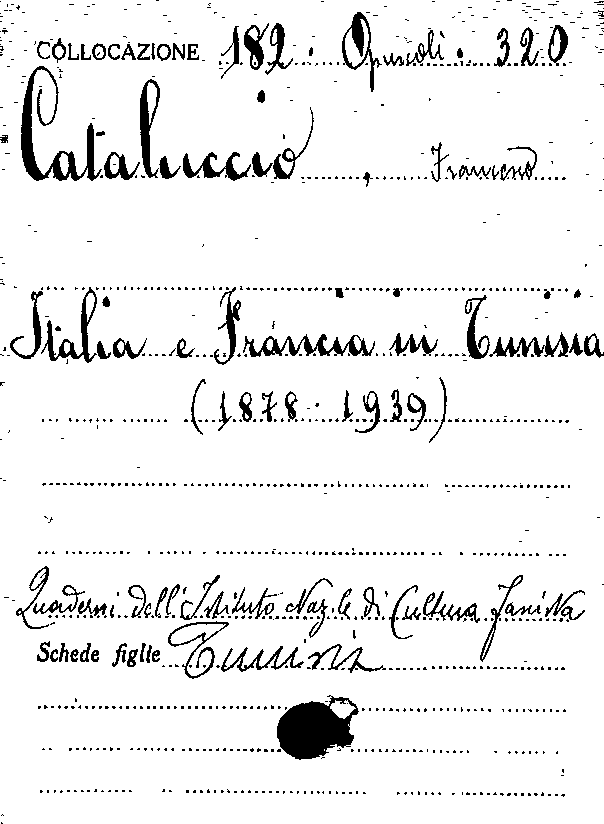 COLLOCAZIONE 182. Opuscoli. 320
Cataluccio, Francesco
Italia e Francia in Tunisia
(1878-1939)
Quaderni dell'Istituto Naz.le di Cultura Fascista
Schede figlie Tunisia